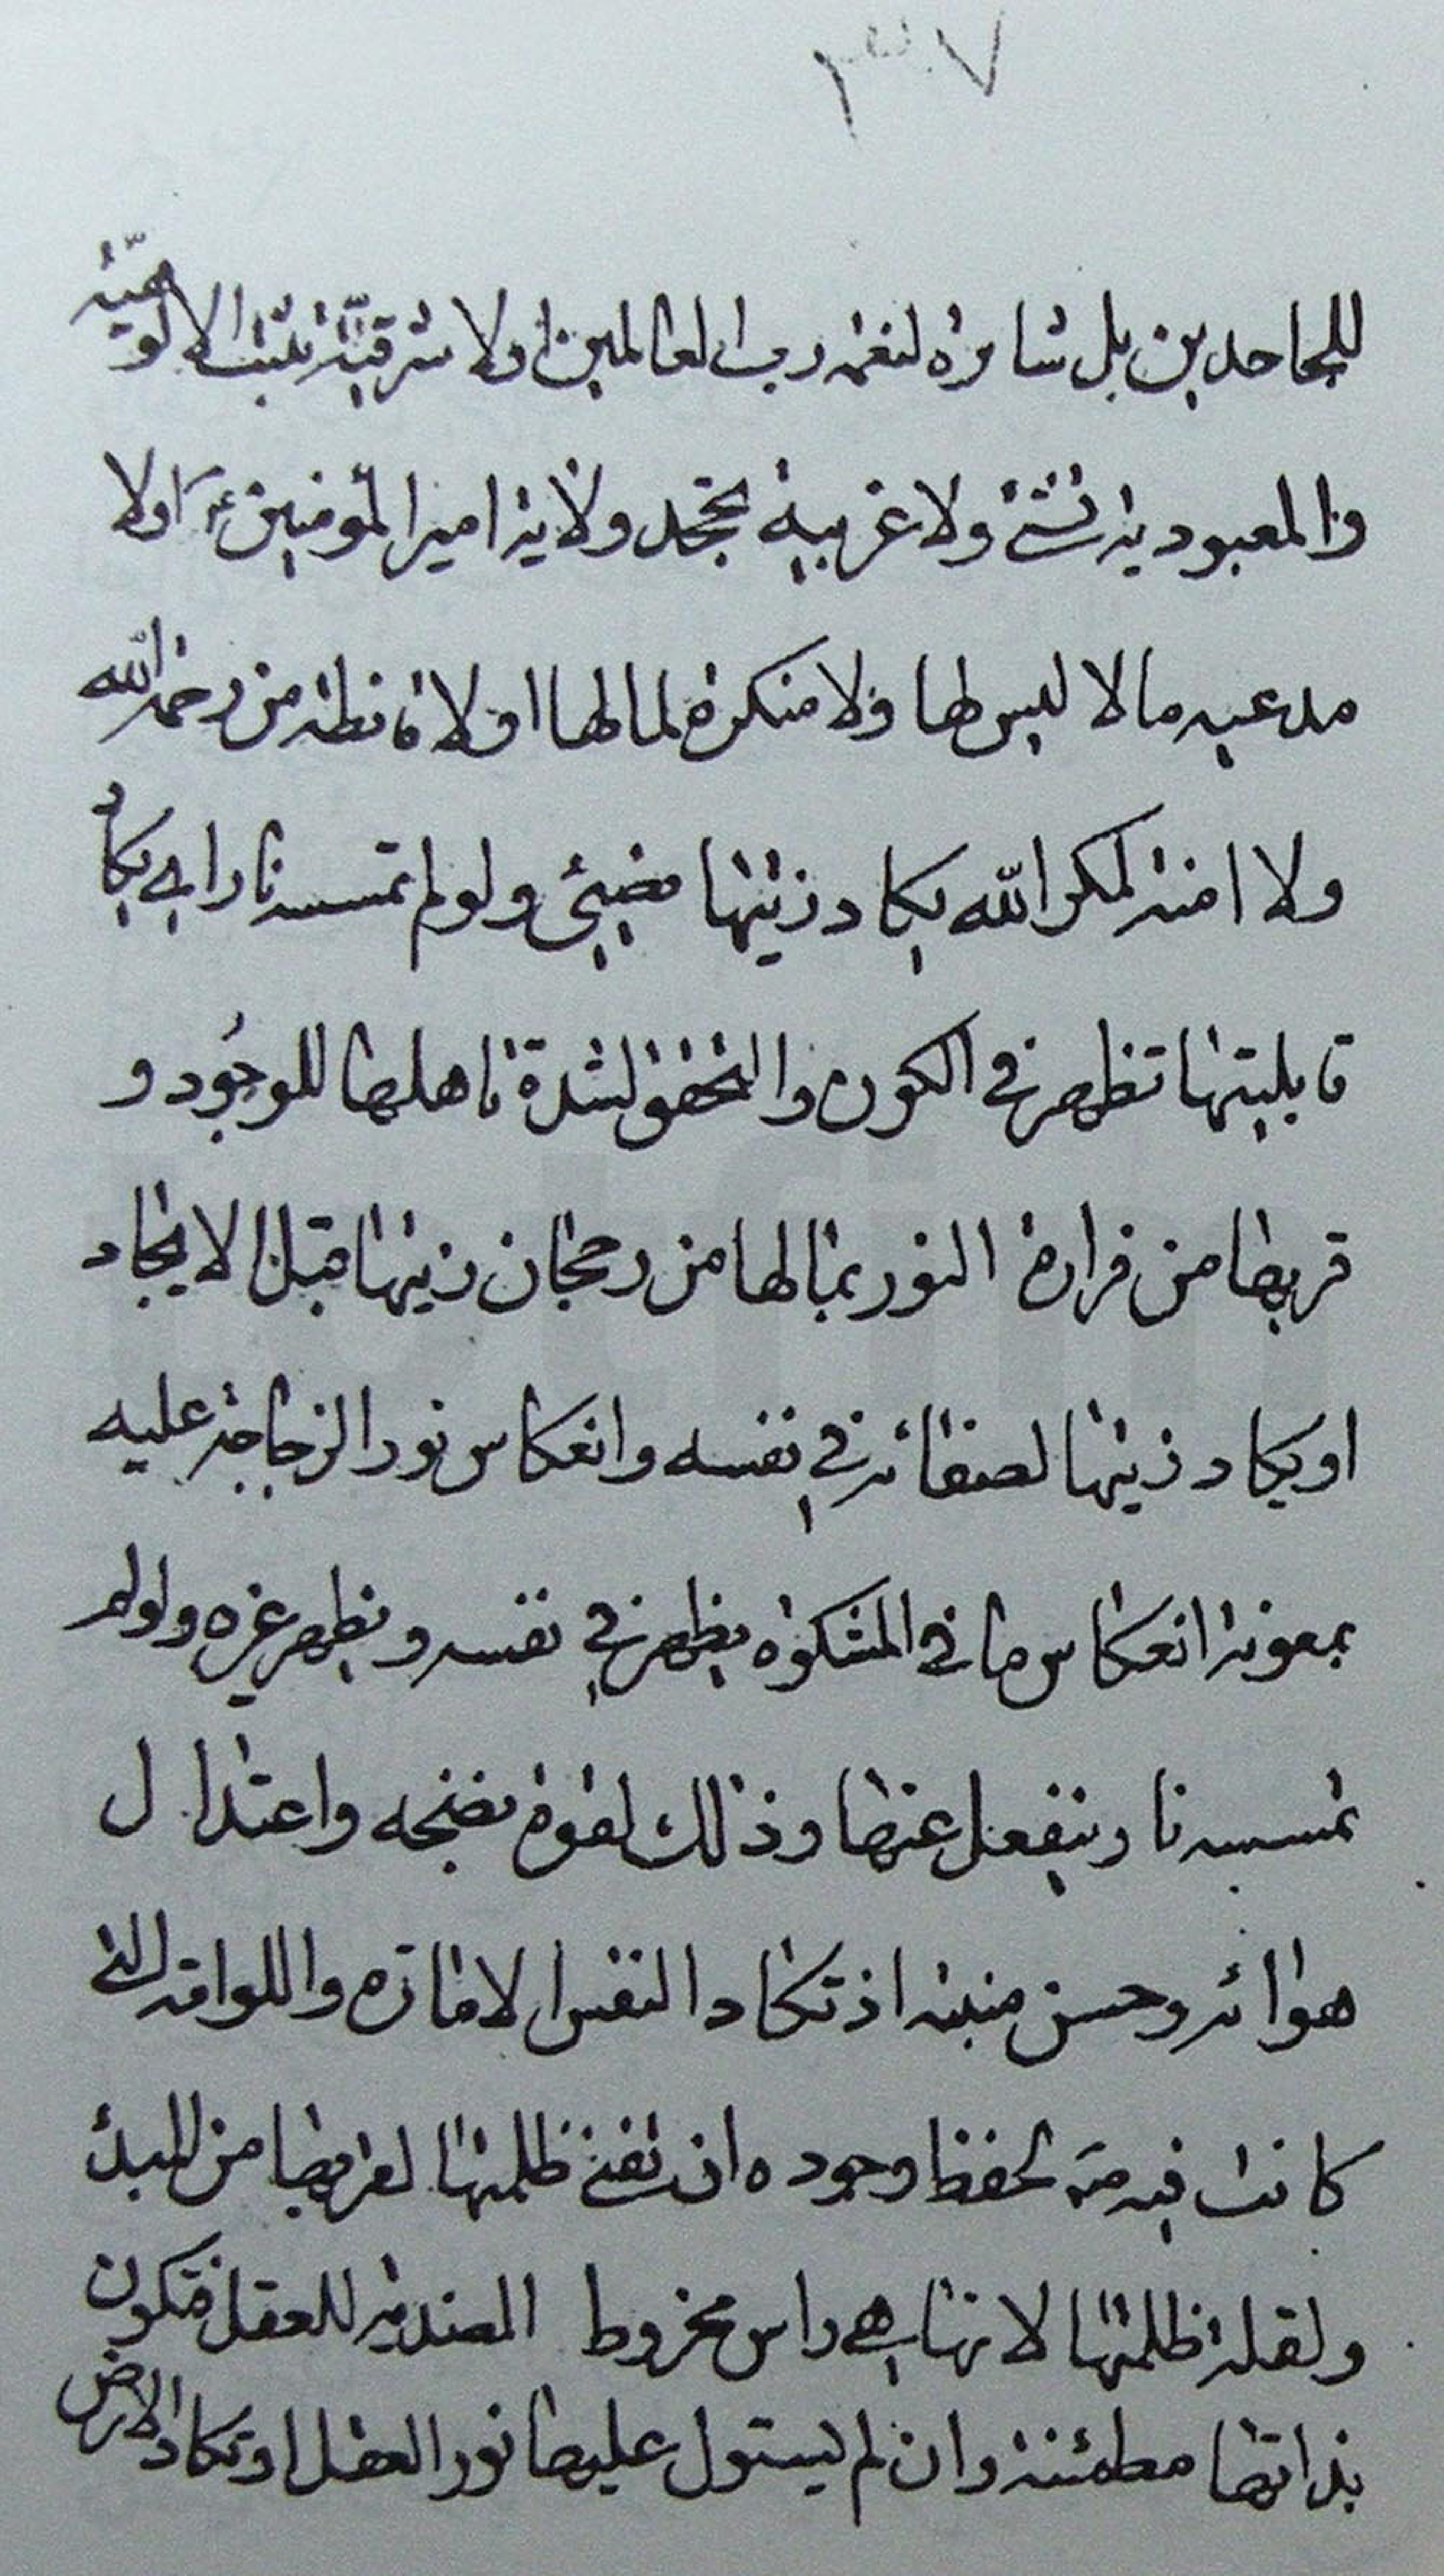 ٣٧
للجاحدين بل شاكرة لنعمة رب العالمين او لا شرقية تثبت الالوهية
والمعبودية ولا غربية تجحد ولاية امير المؤمنين ع او لا
مدعيه ما لا ليس لها ولا منكرة لما لها او لا قانطة من رحمة الله
ولا امنة لمكر الله يكاد زيتها يضيئ ولو لم تمسسه نار اى يكاد
قابليتها تظهر في الكون والتحقق لشدة تاهلها للوجود و
قربها من فوارة النور بما لها من رجحان زيتها قبل الايجاد
او يكاد زيتها لصفائه في نفسه وانعكاس نور الزجاجة عليه
بمعونة انعكاس ما في المشكوة يظهر في نفسه ويظهر غيره ولو لم
تمسسه نار وينفعل عنها وذلك لقوة نضجه واعتدال
هوائه وحسن منبته اذ تكاد النفس الامارة واللوامة التي
كانت فيه لحفظ وجوده ان تفنى ظلمتها لقربها من المبدء
ولقلة ظلمتها لانها هي راس مخروط الضدية للعقل فتكون
بذاتها مطمئنة وان لم يستول عليها نور العقل او تكاد الارض